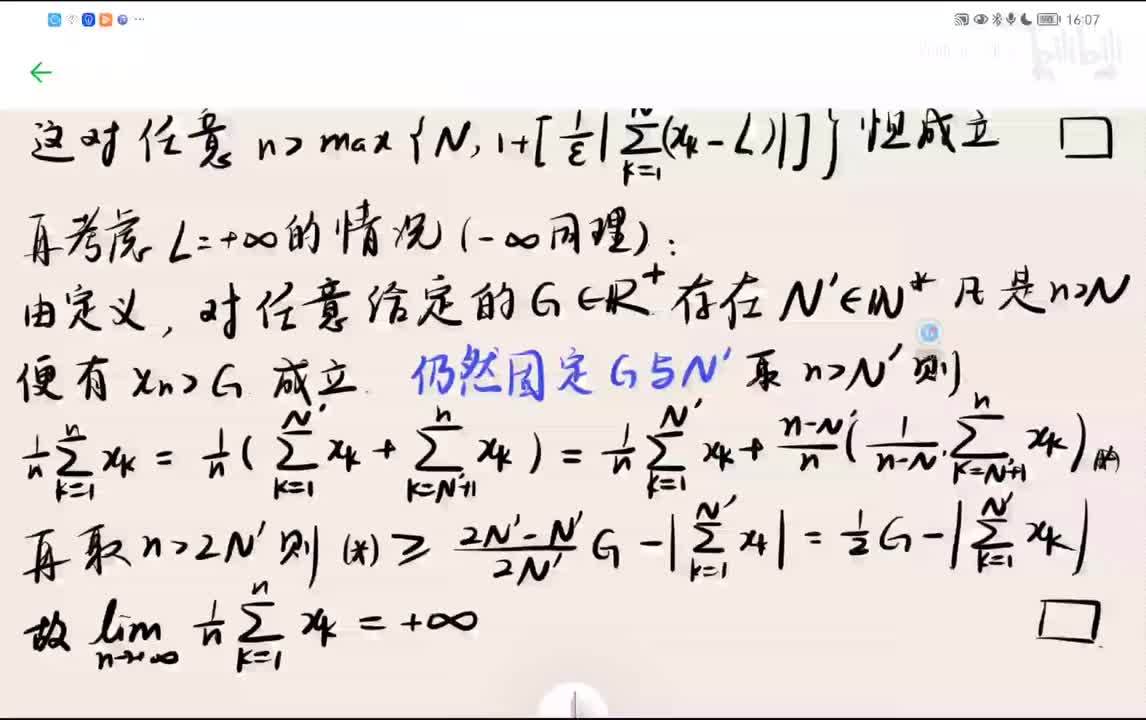 16:07
bilibili
这对任意 n > max {N, 1+[1/ε|∑_{k=1}^{N}(x_k-L)|]} 恒成立 □
再考虑 L=+∞的情况(-∞同理):
由定义, 对任意给定的G∈R⁺存在N'∈N* 凡是n>N
便有 x_n>G 成立. 仍然固定G与N' 取 n>N' 则
1/n ∑_{k=1}^{n} x_k = 1/n (∑_{k=1}^{N'} x_k + ∑_{k=N'+1}^{n} x_k) = 1/n ∑_{k=1}^{N'} x_k + (n-N')/n (1/(n-N') ∑_{k=N'+1}^{n} x_k)
再取 n>2N' 则 (*) ≥ (2N'-N')/(2N') G - |∑_{k=1}^{N'} x_k| = 1/2 G - |∑_{k=1}^{N'} x_k|
故 lim_{n→+∞} 1/n ∑_{k=1}^{n} x_k = +∞ □